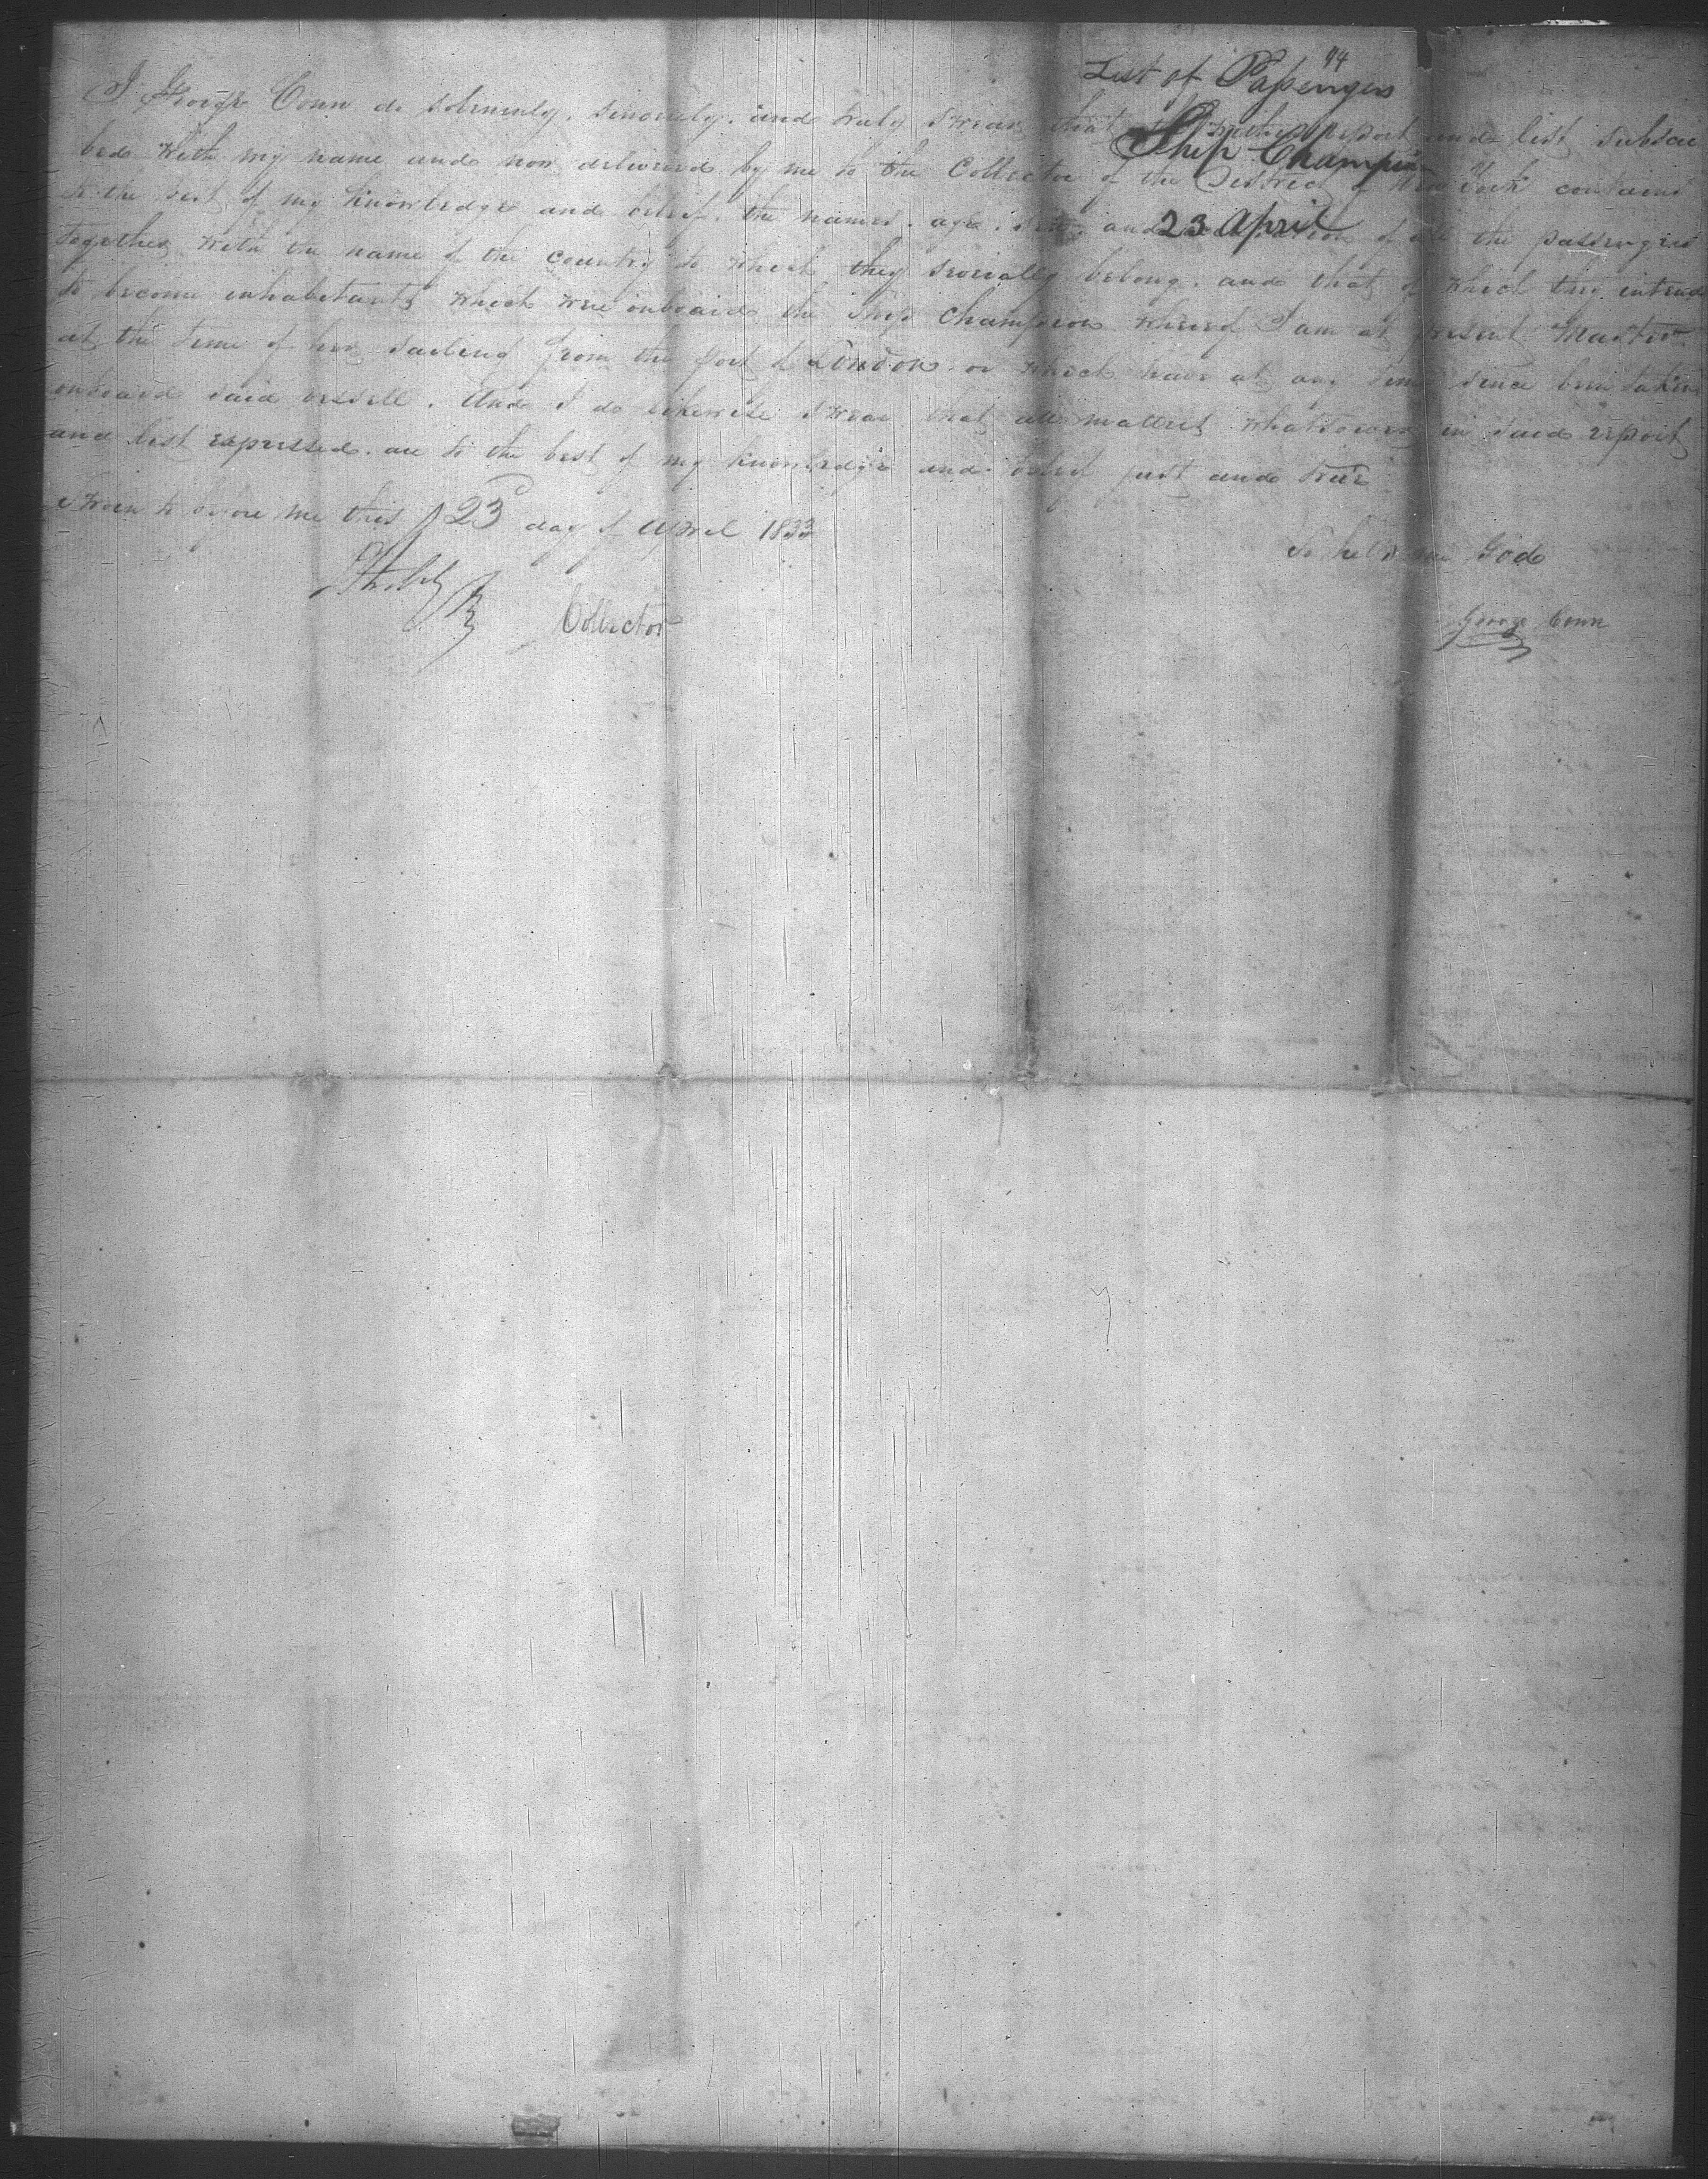 94
List of Passengers
Ship Champion
23 April
I George Conn do solemnly, sincerely, and truly swear that the report and list subscri
bed with my name and now delivered by me to the Collector of the District of New York contains
to the best of my knowledge and belief, the names, age, sex, and of all the passengers
together with the name of the country to which they severally belong, and that of which they intend
to become inhabitants which were onboard the Ship Champion whereof I am at present Master
at the time of her sailing from the port of London or which have at any time since been taken
onboard said vessell. And I do likewise swear that all matters whatsoever in said report
and list expressed are to the best of my knowledge and belief just and true
Sworn to before me this 23 day of April 1833
So help me God
Collector
George Conn